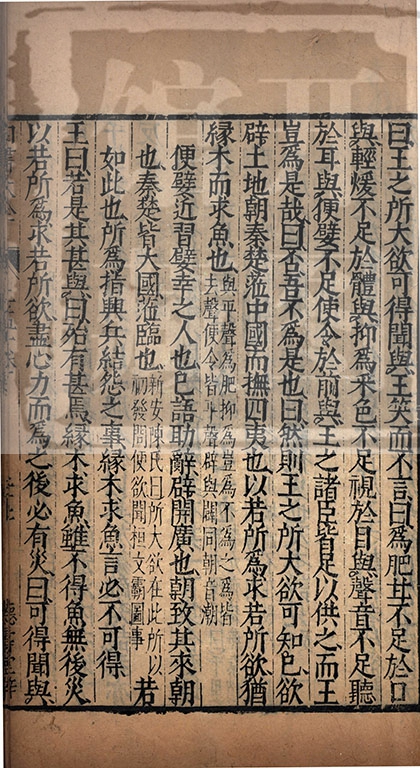 曰王之所大欲可得聞與王笑而不言曰為肥甘不足於口
與輕煖不足於體與抑為采色不足視於目與聲音不足聽
於耳與便嬖不足使令於前與王之諸臣皆足以供之而王
豈為是哉曰否吾不為是也曰然則王之所大欲可知已欲
辟土地朝秦楚蒞中國而撫四夷也以若所為求若所欲猶
緣木而求魚也與平聲為肥抑為豈為不為之為皆
去聲便令皆平聲辟與闢同朝音潮
便嬖近習嬖幸之人也已語助辭辟開廣也朝致其來朝
也秦楚皆大國蒞臨也新安陳氏曰所大欲在此所以
初發問便欲聞桓文霸圖事若
如此也所為指興兵結怨之事緣木求魚言必不可得
王曰若是其甚與曰殆有甚焉緣木求魚雖不得魚無後災
以若所為求若所欲盡心力而為之後必有災曰可得聞與